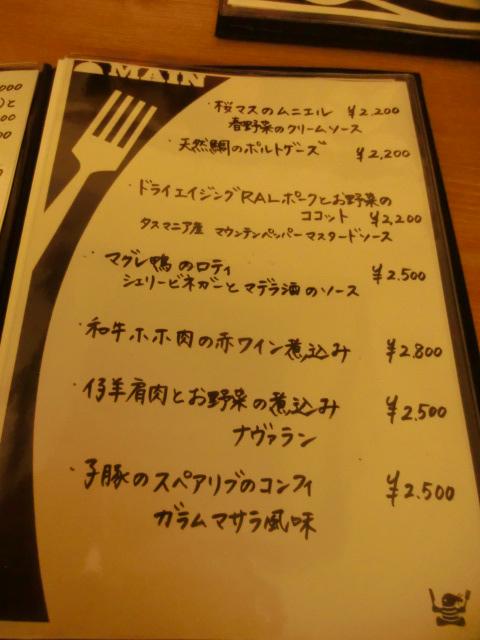 MAIN
・桜マスのムニエル ¥2,200
春野菜のクリームソース
・天然鯛のポルトゲーズ ¥2,200
・ドライエイジングRALポークとお野菜の
ココット ¥2,200
タスマニア産 マウンテンペッパーマスタードソース
・マグレ鴨のロティ ¥2.500
シェリービネガーとマデラ酒のソース
・和牛ホホ肉の赤ワイン煮込み ¥2.800
・仔羊肩肉とお野菜の煮込み ¥2.500
ナヴァラン
・子豚のスペアリブのコンフィ ¥2.500
ガラムマサラ風味